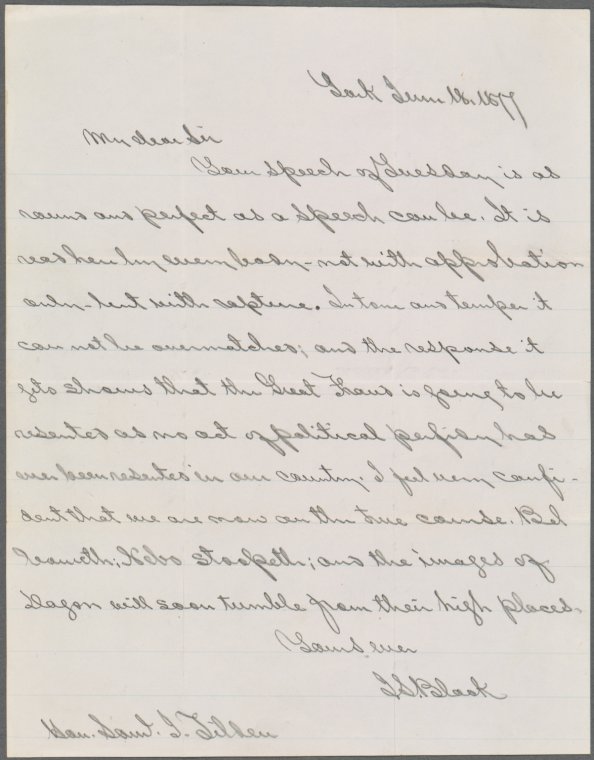 York June 18. 1877
My dear Sir
Your speech of Tuesday is as
round and perfect as a speech can be. It is
read here by everybody - not with approbation
only - but with rapture. In tone and temper it
can not be overmatched; and the response it
gets shows that the Great Fraud is going to be
resented as no act of political perfidy has
ever been resented in our country. I feel very confi-
dent that we are now on the true course. Bel
boweth; Nebo stoopeth; and the images of
Dagon will soon tumble from their high places.
Yours ever
J. S. Black
Hon. Saml. J. Tilden